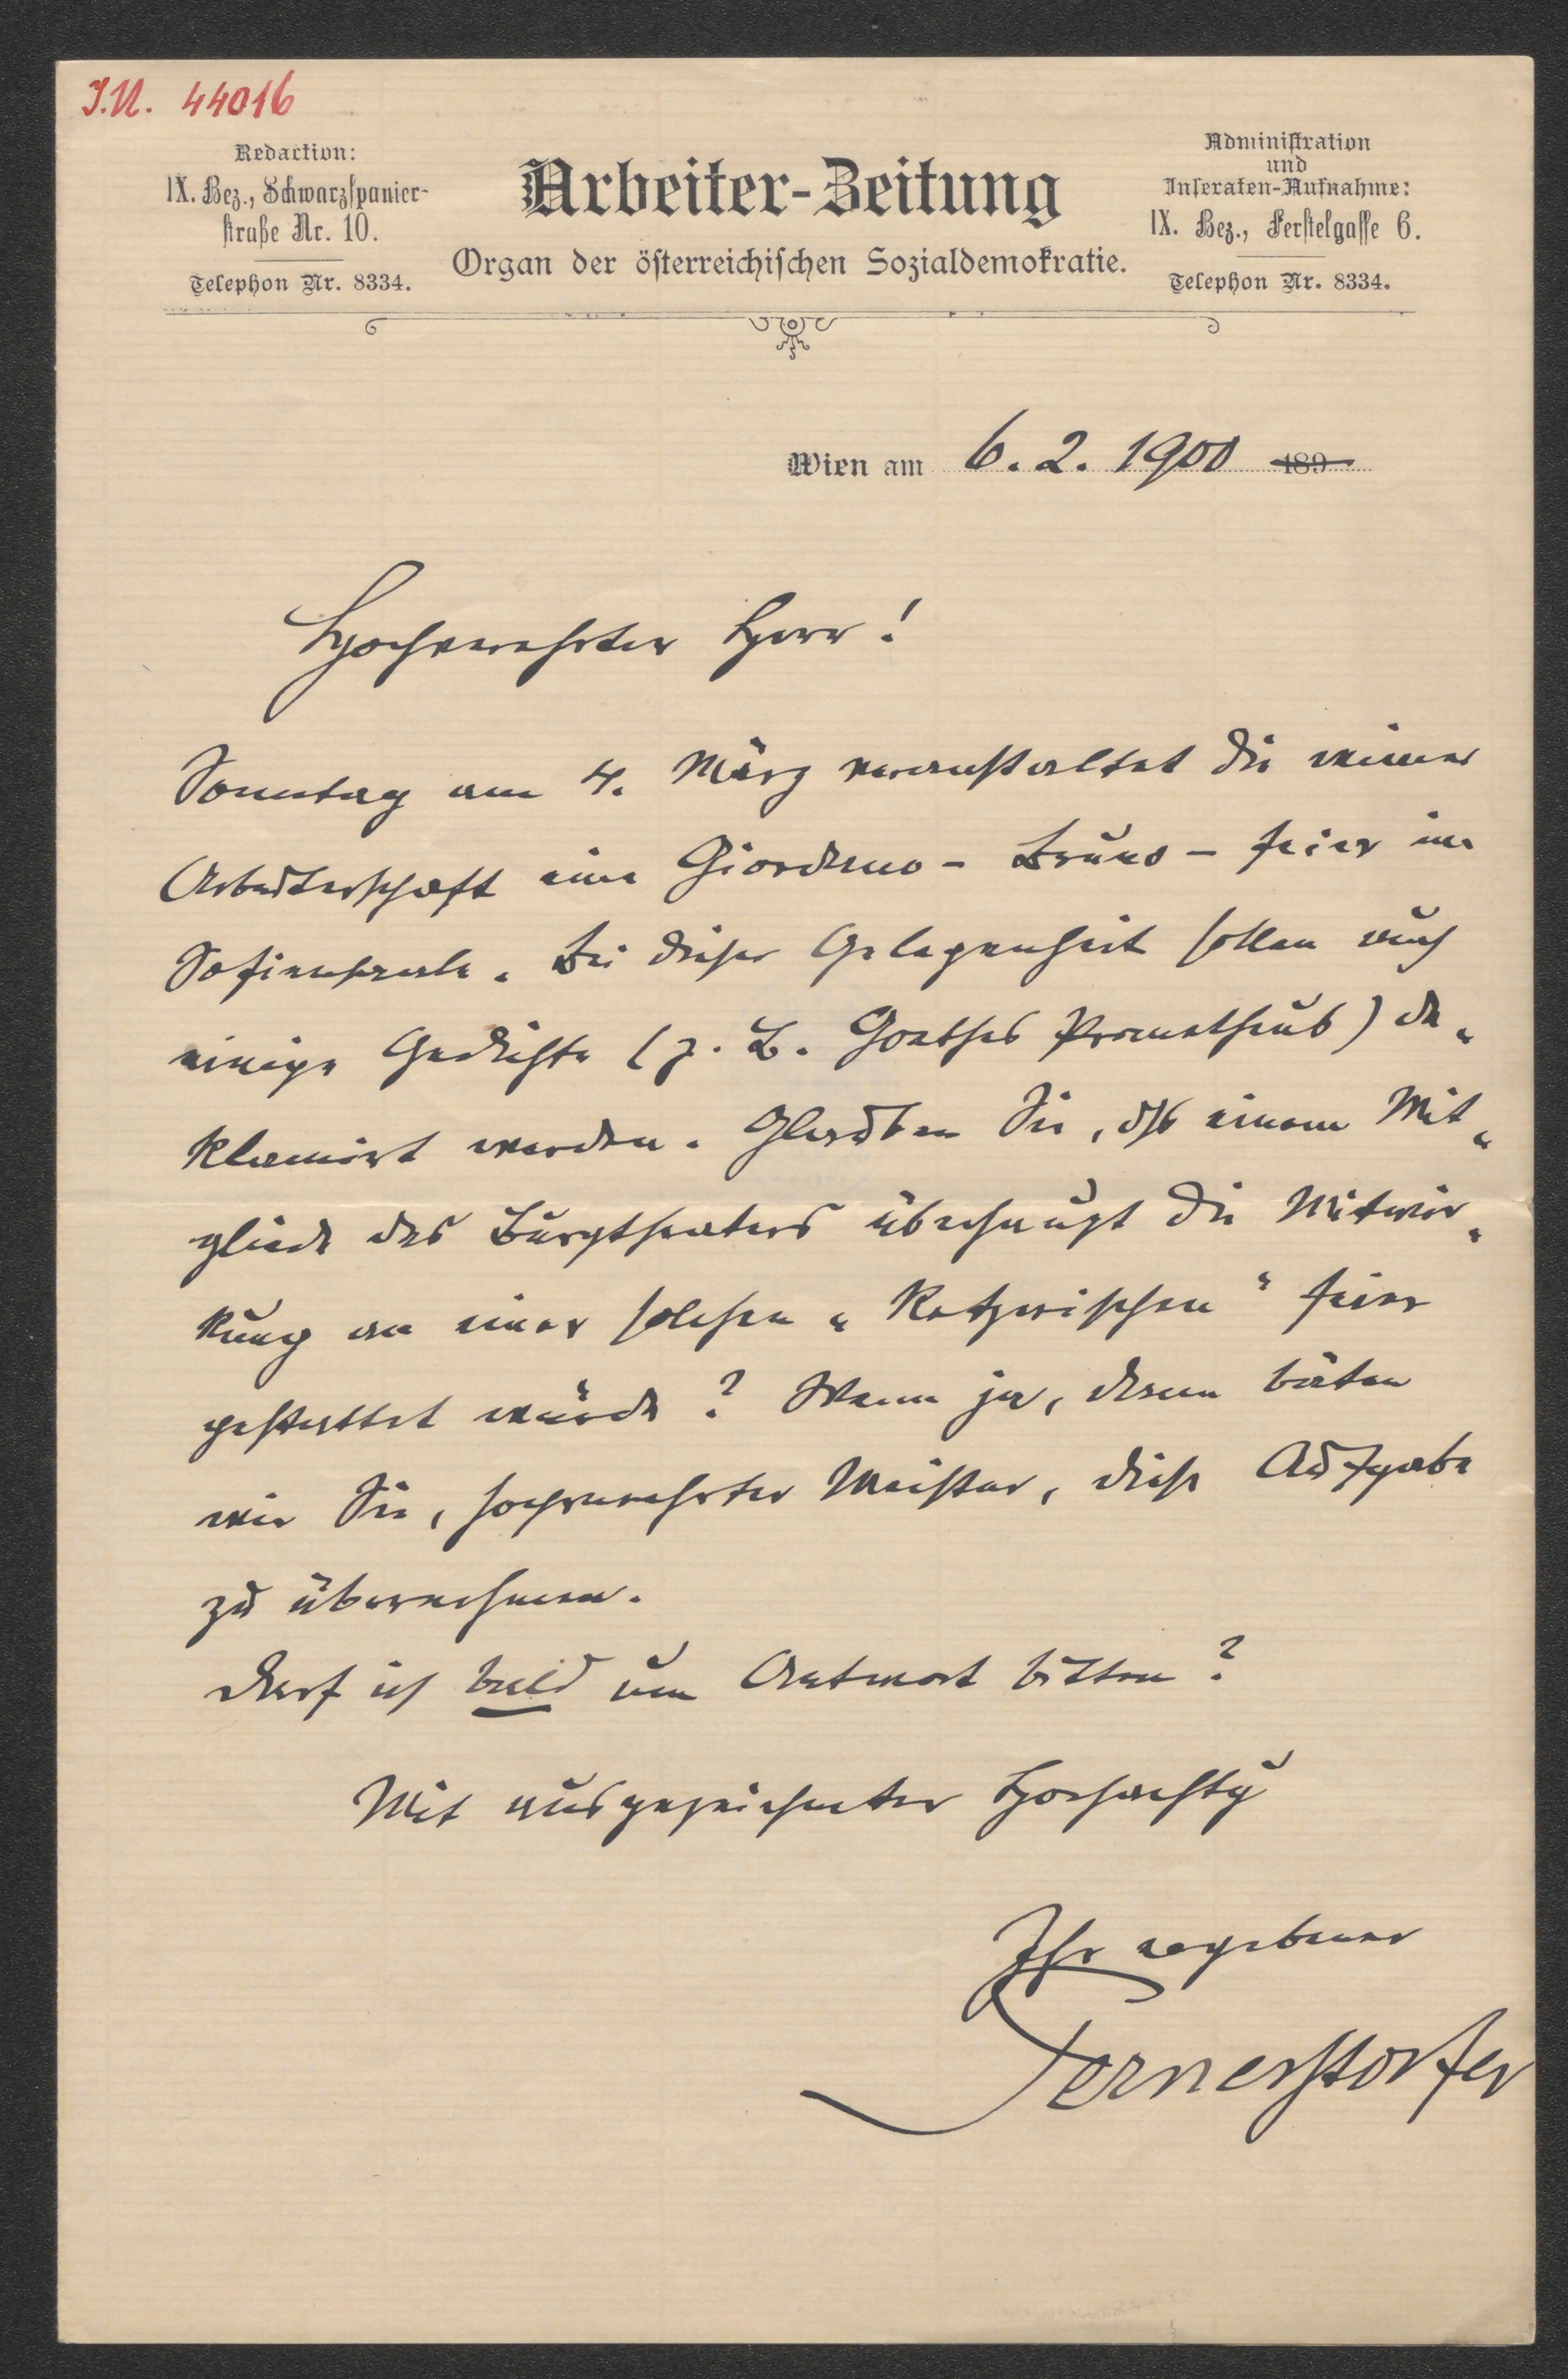 I.N. 44016
Redaction:
IX. Bez., Schwarzspanier-
straße Nr. 10.
Telephon Nr. 8334.
Arbeiter-Zeitung
Organ der österreichischen Sozialdemokratie.
Administration
und
Inseraten-Aufnahme:
IX. Bez., Ferstelgasse 6.
Telephon Nr. 8334.
Wien am 6. 2. 1900 189
Hochverehrter Herr!
Sonntag am 4. März veranstaltet die wiener
Arbeiterschaft eine Giordano-Bruno-Feier im
Sofiensaale. Bei dieser Gelegenheit sollen auch
einige Gedichte (z. B. Goethes Prometheus) de„
klamirt werden. Glauben Sie, dß einem Mit„
gliede des Burgtheaters überhaupt die Mitwir„
kung an einer solchen „Ketzerischen“ Feier
gestattet würde? Wenn ja, dann bäten
wir Sie, hochverehrter Meister, diese Aufgabe
zu übernehmen.
Darf ich bald um Antwort bitten?
Mit ausgezeichneter Hochachtg
Ihr ergebener
Pernerstorfer